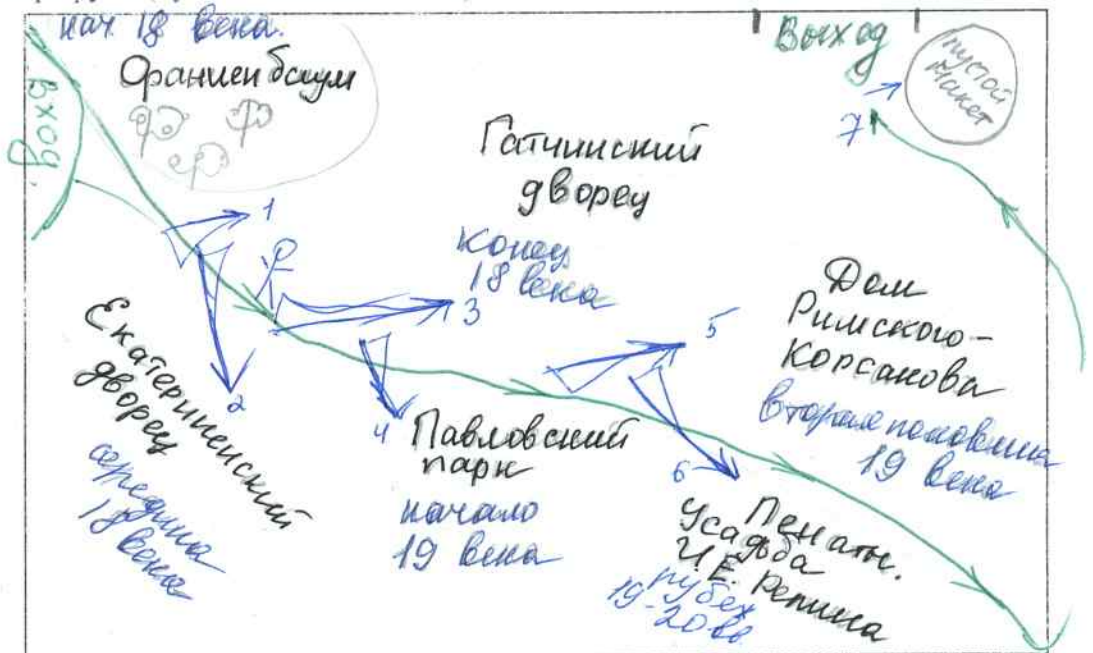 нач. 18 века.
Ораниенбаум
вход
Выход
пустой
макет
7
Гатчинский
дворец
конец
18 века
1
3
2
Екатерининский
дворец
середина
18 века
4
Павловский
парк
начало
19 века
5
6
Дом
Римского-
Корсакова
вторая половина
19 века
Пенаты.
Усадьба
И.Е. Репина
рубеж
19-20 вв